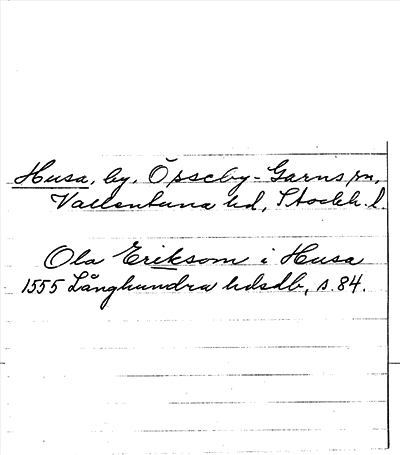 Husa, by, Össeby-Garns sn,
Vallentuna hd, Stockh. l.
Ola Eriksom i Husa
1555 Långhundra hdsdb, s. 84.